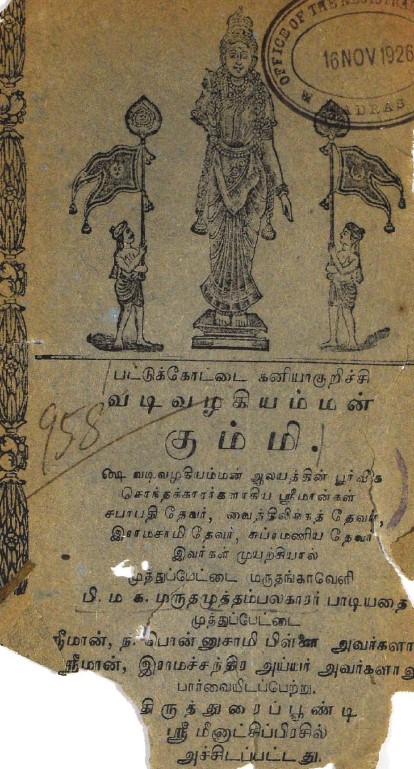 OFFICE OF THE REGISTRAR
16 NOV 1926
MADRAS
958
பட்டுக்கோட்டை கனியாகுறிச்சி
வடிவழகியம்மன்
கும்மி.
௸ வடிவழகியம்மன் ஆலயத்தின் பூர்வீக
சொந்தக்காரர்களாகிய ஸ்ரீமான்கள்
சபாபதி தேவர், வைத்திலிங்கத் தேவர்,
இராமசாமி தேவர், சுப்ரமணிய தேவர்
இவர்கள் முயற்சியால்
முத்துப்பேட்டை மருதங்காவெளி
பி. ம க. மருதமுத்தம்பலகாரர் பாடியதை
முத்துப்பேட்டை
ஸ்ரீமான், ந. பொன்னுசாமி பிள்ளை அவர்களா
ஸ்ரீமான், இராமச்சந்திர அய்யர் அவர்களா
பார்வையிடப்பெற்று.
திருத்துரைப்பூண்டி
ஸ்ரீ மீனாட்சிப்பிரசில்
அச்சிடப்பட்டது.